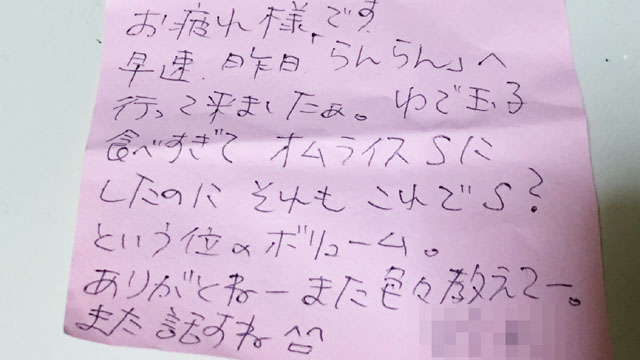 お疲れ様です
早速、昨日「らんらん」へ
行って来ましたぁ。ゆで玉子
食べすぎて オムライスSに
したのに それも これでS?
という位のボリューム。
ありがとねーまた色々教えてー。
また話すね ^^